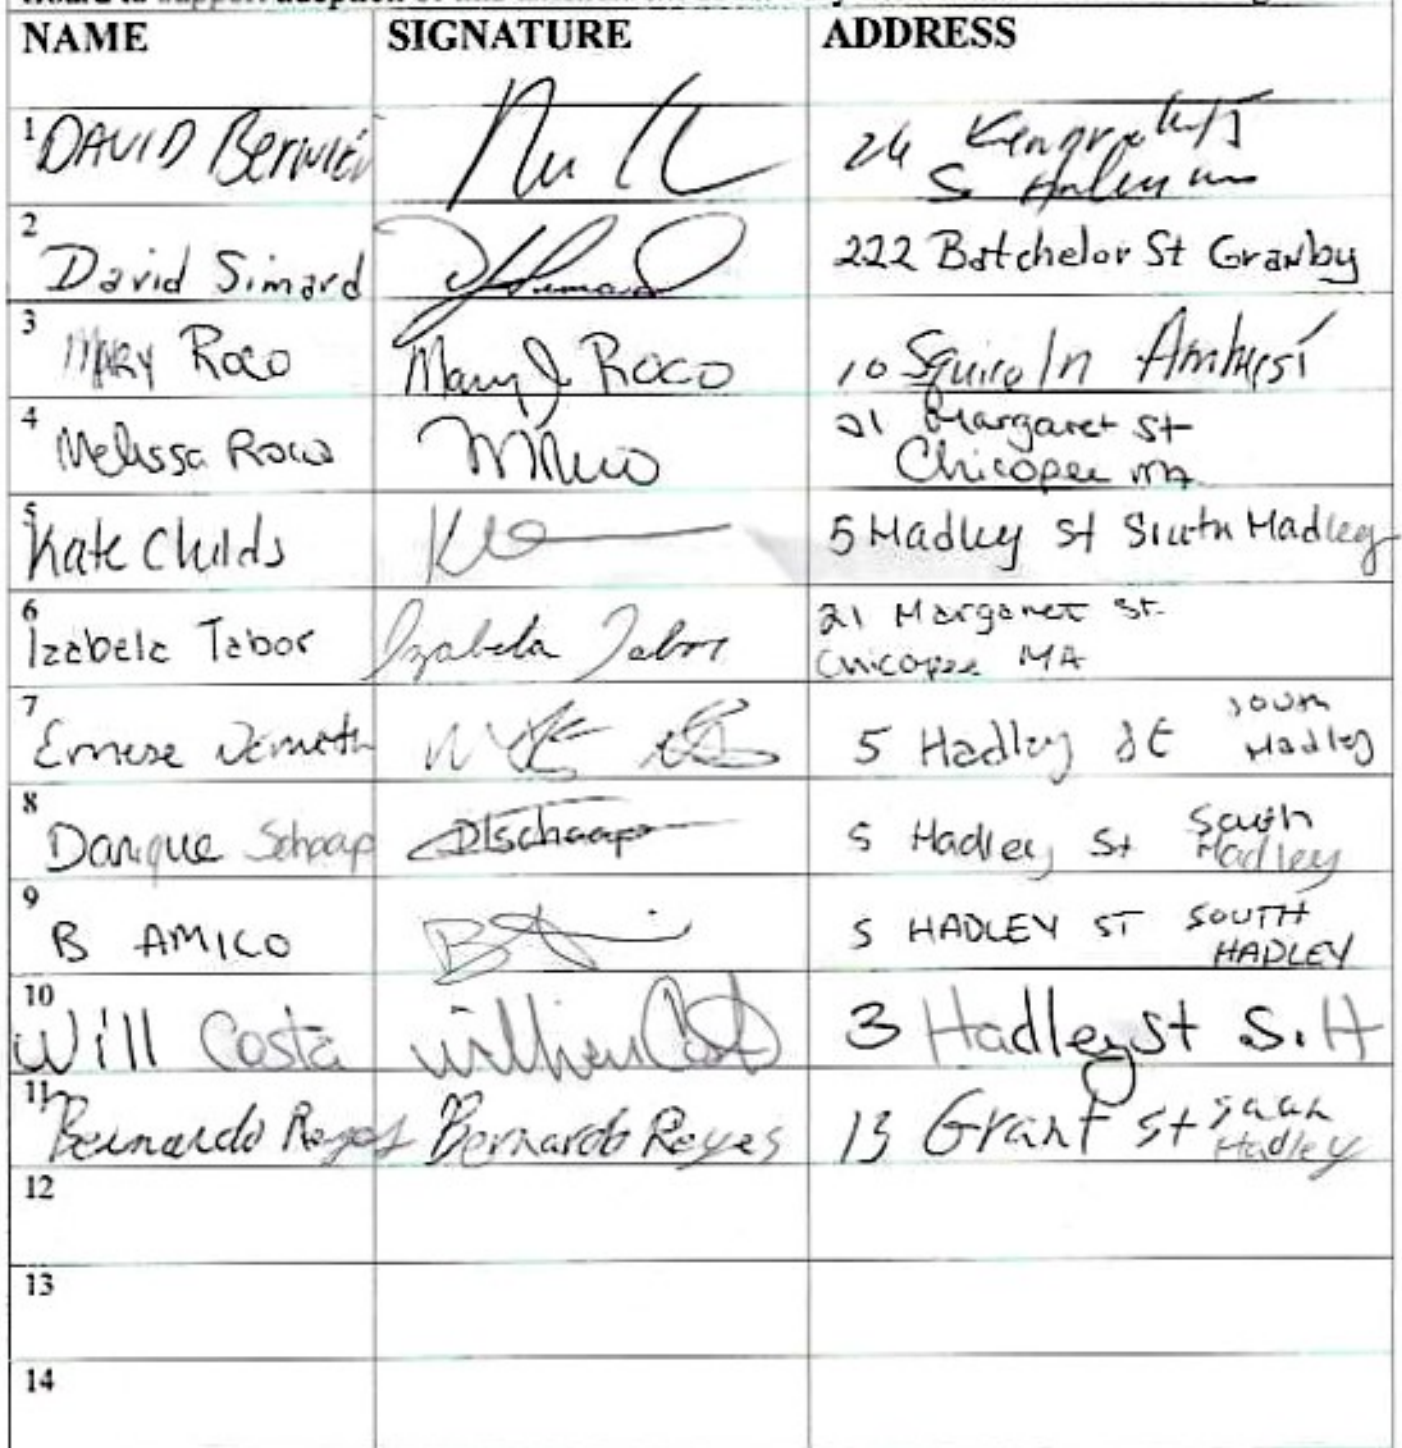 NAME SIGNATURE ADDRESS
1 DAVID Bernier 24 S.
2 David Simard 222 Batchelor St Granby
3 MARY Roco Mary J Roco 10 Squire ln Amherst
4 Melissa Roco 21 Margaret St
Chicopee MA
5 Kate Childs 5 Hadley St South Hadley
6 Izabela Tabor Izabela Tabor 21 Margaret St.
Chicopee MA
7 Emese Nemeth 5 Hadley St South
Hadley
8 Danique Schaap DISchaap 5 Hadley St South
Hadley
9 B AMICO 5 HADLEY ST SOUTH
HADLEY
10 Will Costa William Costa 3 Hadley st S.H
11 Bernardo Reyes Bernardo Reyes 13 Grant St
Hadley
12
13
14